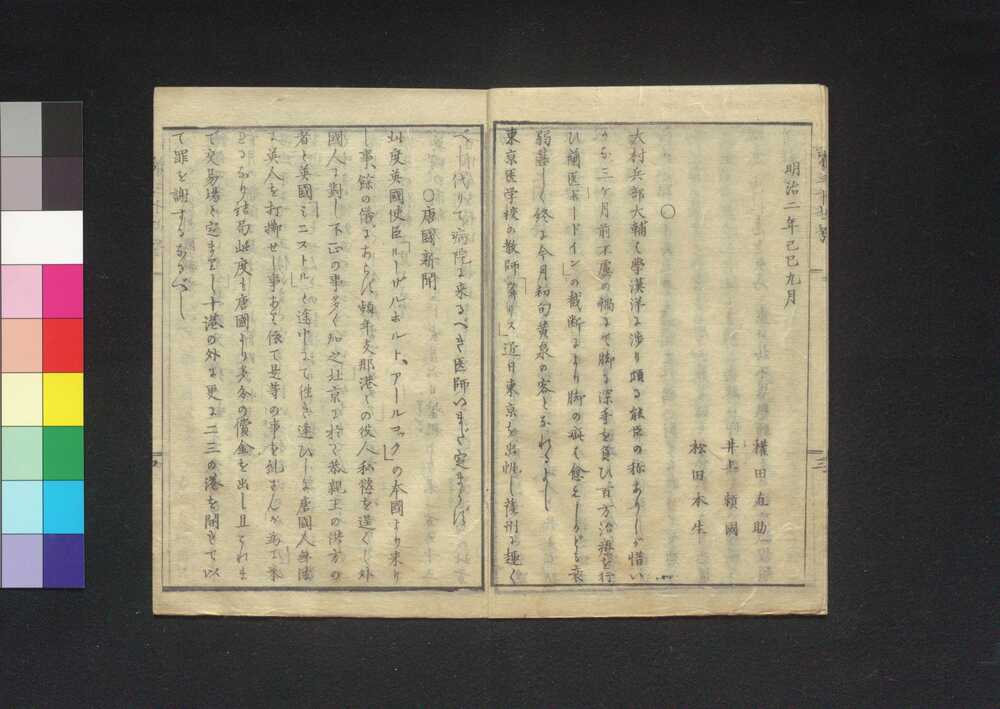 明治二年己巳九月
権田直助
井上頼國
松田本生
〇
大村兵部大輔ハ學漢洋に渉り頗る能臣の称ありしが惜い
かな三ヶ月前不慮の禍にて脚に深手を負ひ百方治療を行
ひ蘭医「ボードイン」の裁断により脚の疵ハ愈えしかども衰
弱甚しく終に今月初旬黄泉の客となれりとし
東京医学校の教師「ウリス」近日東京を出帆し薩州に趣く
べし代りて病院に来るべき医師ハいまだ定まらず
〇唐國新聞
此度英國使臣「ルーザルホルト、アールコック」の本國より来り
し事餘の儀にあらず頼年支那港々の役人私慾を逞くし外
國人に對し不正の事多く加之北京に於て恭親王の
者と英國ミニストルと途中にて徃き逢ひしに唐國人無法
に英人を打擲せし事あり依て是等の事を糺さんが為に来
となり結局此度も唐國より多分の償金を出し且これま
で交易場と定まりし十港の外に更に二三の港を開きて以
て罪を謝するなるべし